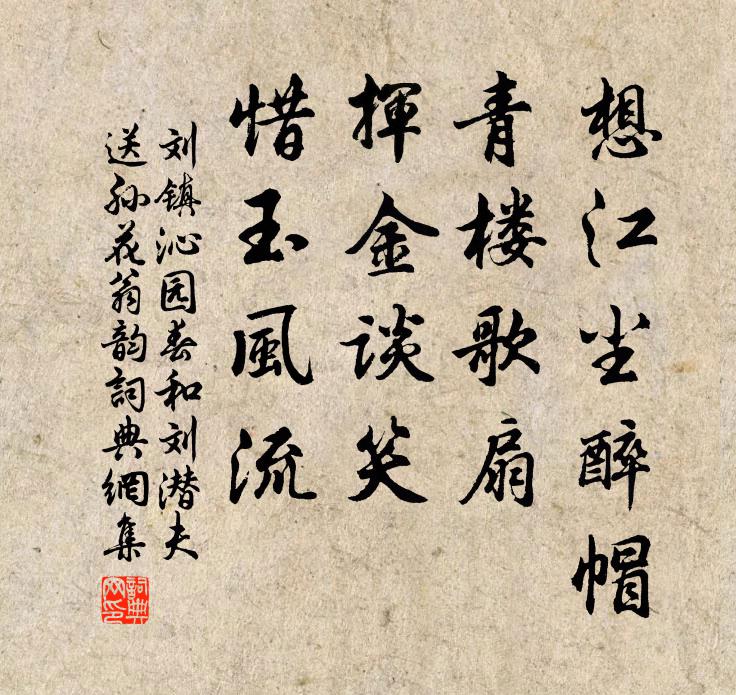 想江尘醉帽
青楼歌扇
揮金談笑
惜玉風流
刘镇沁园春和刘潜夫
送孙花翁韵詞典網集
詞典網印